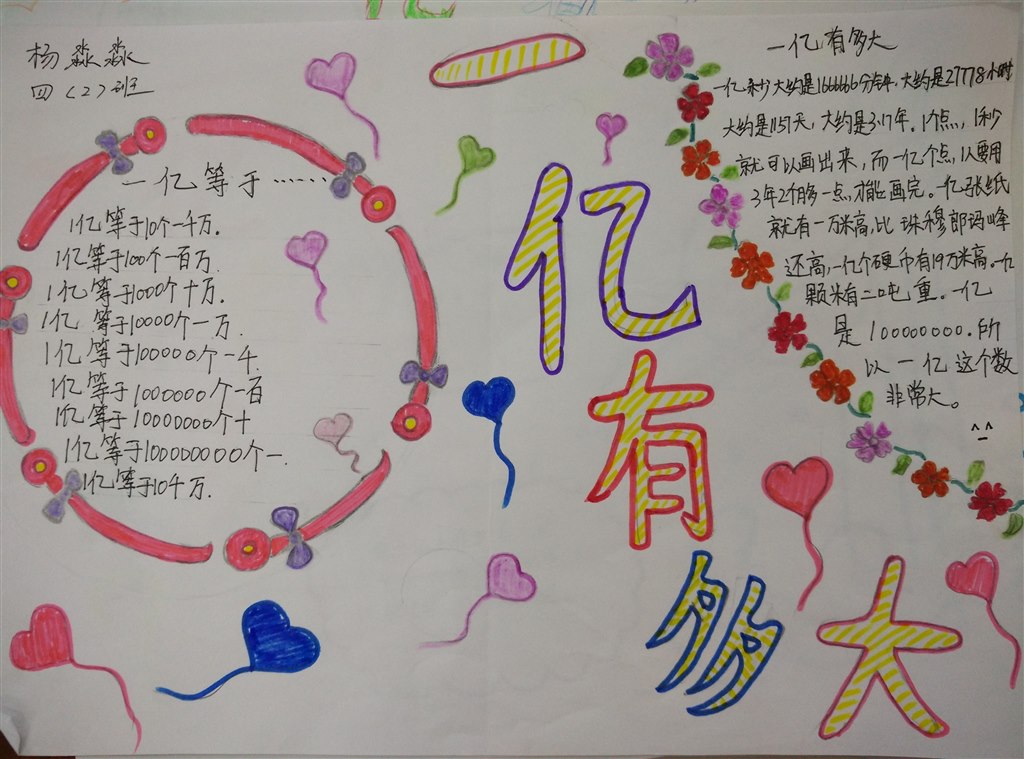 杨淼淼
四（2）班
一亿等于……
1亿等于10个一千万.
1亿等于100个一百万.
1亿等于1000个十万.
1亿等于10000个一万.
1亿等于100000个一千.
1亿等于1000000个一百
1亿等于10000000个十
1亿等于100000000个一.
1亿等于10千万.
一亿有多大
一亿有多大
一亿秒大约是1666666分钟.大约是27778小时
大约是1157天,大约是3.17年.1个点,1秒
就可以画出来,而一亿个点,从要用
3年2个多一点,才能画完。一亿张纸
就有一万米高,比珠穆郎玛峰
还高,一亿个硬币有19万米高.一亿
颗米有二吨重.一亿
是100000000.所
以一亿这个数
非常大。
^_^